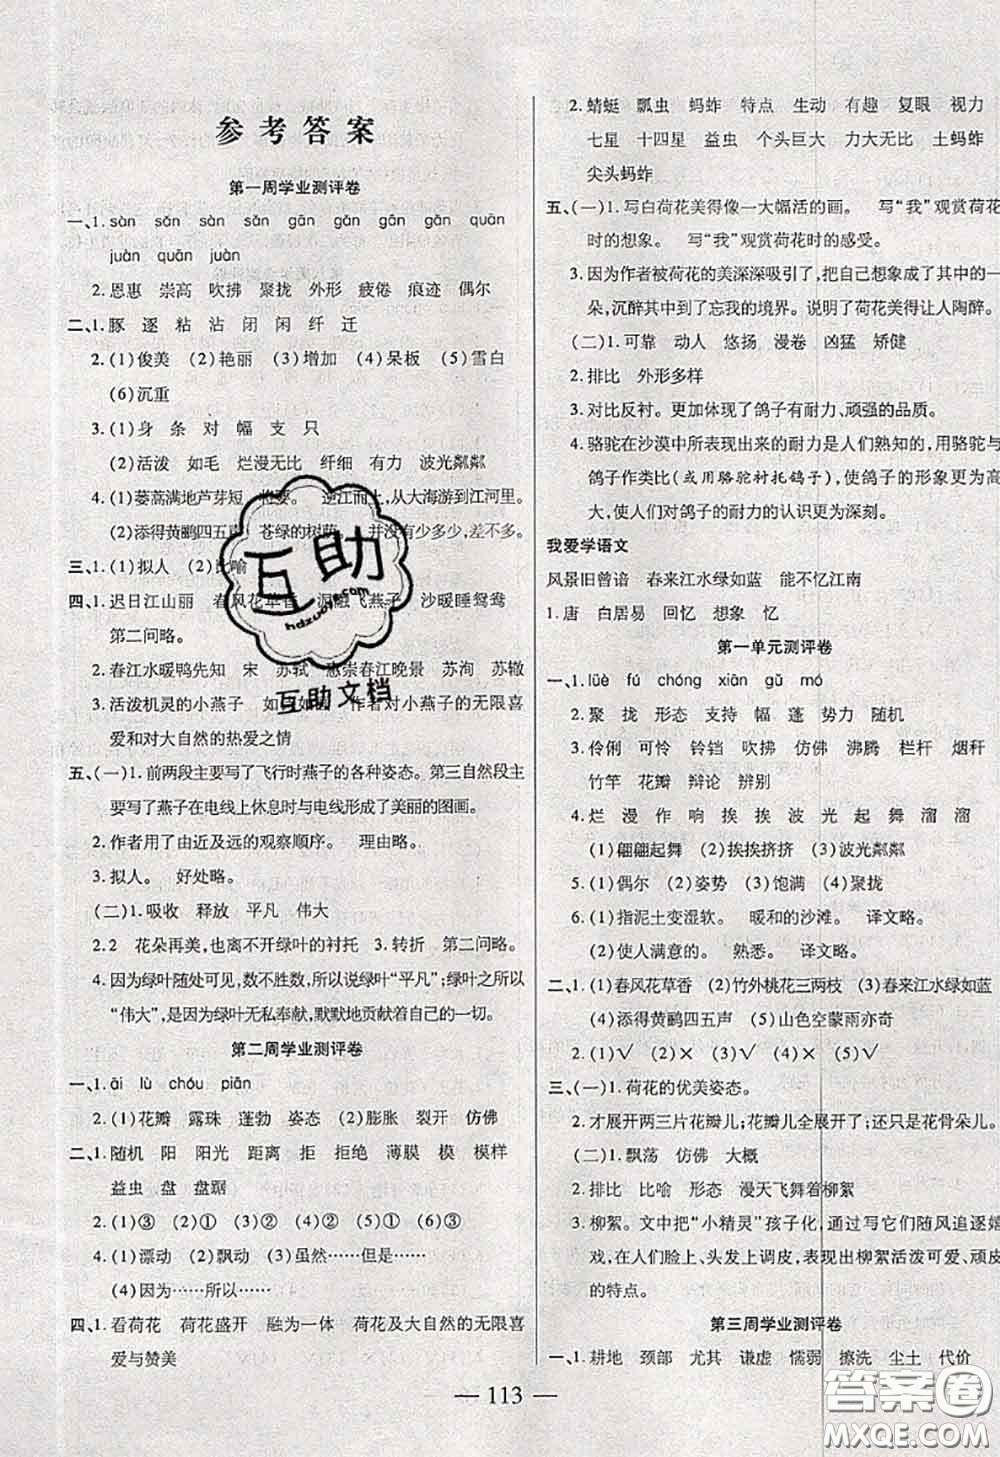 参考答案
第一周学业测评卷
一、1. sàn sǎn sàn sǎn gān gǎn gān gǎn quān
juàn quān juàn
2. 恩惠 崇高 吹拂 聚拢 外形 疲倦 痕迹 偶尔
二、1. 豚 逐 粘 沾 闭 闲 纤 迁
2. (1)俊美 (2)艳丽 (3)增加 (4)呆板 (5)雪白
(6)沉重
3. (1)身 条 对 幅 支 只
(2)活泼 如毛 烂漫无比 纤细 有力 波光粼粼
4. (1)蒌蒿满地芦芽短 将要。 逆江而上,从大海游到江河里。
(2)添得黄鹂四五声 苍绿的树荫。 并没有少多少,差不多。
三、1. (1)拟人 (2)比喻
四、1. 迟日江山丽 春风花草香 泥融飞燕子 沙暖睡鸳鸯
第二问略。
2. 春江水暖鸭先知 宋 苏轼 惠崇春江晚景 苏洵 苏辙
3. 活泼机灵的小燕子 作者对小燕子的无限喜
爱和对大自然的热爱之情
五、(一)1. 前两段主要写了飞行时燕子的各种姿态。第三自然段主
要写了燕子在电线上休息时与电线形成了美丽的图画。
2. 作者用了由近及远的观察顺序。 理由略。
3. 拟人。 好处略。
(二)1. 吸收 释放 平凡 伟大
2. 2 花朵再美,也离不开绿叶的衬托 3. 转折 第二问略。
4. 因为绿叶随处可见,数不胜数,所以说绿叶“平凡”;绿叶之所以
“伟大”,是因为绿叶无私奉献,默默地贡献着自己的一切。
第二周学业测评卷
一、1. āi lù chóu piān
2. (1)花瓣 露珠 莲蓬 姿态 (2)膨胀 裂开 仿佛
二、1. 随机 阳 阳光 距离 拒 拒绝 薄膜 模 模样
益虫 盘 盘踞
2. (1)③ (2)① (3)② (4)② (5)① (6)③
4. (1)漂动 (2)飘动 (3)虽然……但是……
(4)因为……所以……
四、1. 看荷花 荷花盛开 融为一体 荷花及大自然的无限喜
爱与赞美
2. 蜻蜓 瓢虫 蚂蚱 特点 生动 有趣 复眼 视力
七星 十四星 益虫 个头巨大 力大无比 土蚂蚱
尖头蚂蚱
五、(一)1. 写白荷花美得像一大幅活的画。 写“我”观赏荷花
时的想象。 写“我”观赏荷花时的感受。
3. 因为作者被荷花的美深深吸引了,把自己想象成了其中的一
朵,沉醉其中到了忘我的境界。说明了荷花美得让人陶醉。
(二)1. 可靠 动人 悠扬 漫卷 凶猛 矫健
2. 排比 外形多样
3. 对比反衬。更加体现了鸽子有耐力、顽强的品质。
4. 骆驼在沙漠中所表现出来的耐力是人们熟知的,用骆驼与
鸽子作类比(或用骆驼衬托鸽子),使鸽子的形象更为高
大,使人们对鸽子的耐力的认识更为深刻。
我爱学语文
风景旧曾谙 春来江水绿如蓝 能不忆江南
1. 唐 白居易 回忆 想象 忆
第一单元测评卷
一、1. lüè fú chóng xiān gǔ mó
2. 聚 拢 形态 支持 幅 蓬 势力 随机
3. 伶俐 可怜 铃铛 吹拂 仿佛 沸腾 栏杆 烟秆
竹竿 花瓣 辩论 辨别
4. 烂 漫 作 响 挨 挨 波 光 起 舞 溜 溜
(1)翩翩起舞 (2)挨挨挤挤 (3)波光粼粼
5. (1)偶尔 (2)姿势 (3)饱满 (4)聚拢
6. (1)指泥土变湿软。 暖和的沙滩。 译文略。
(2)使人满意的。 熟悉。 译文略。
二、1. (1)春风花草香 (2)竹外桃花三两枝 (3)春来江水绿如蓝
(4)添得黄鹂四五声 (5)山色空蒙雨亦奇
2. (1)√ (2)× (3)× (4)√ (5)√
三、(一)1. 荷花的优美姿态。
2. 才展开两三片花瓣儿;花瓣儿全展开了;还只是花骨朵儿。
(二)1. 飘荡 仿佛 大概
2. 排比 比喻 形态 漫天飞舞着柳絮
3. 柳絮。文中把“小精灵”孩子化,通过写它们随风追逐嬉
戏,在人们脸上、头发上调皮,表现出柳絮活泼可爱、顽皮
的特点。
第三周学业测评卷
一、1. 耕地 颈部 尤其 谦虚 懦弱 擦洗 尘土 代价
— 113 —
互助
hdzuoye.com
互助文档
答案圈
MXQE.COM